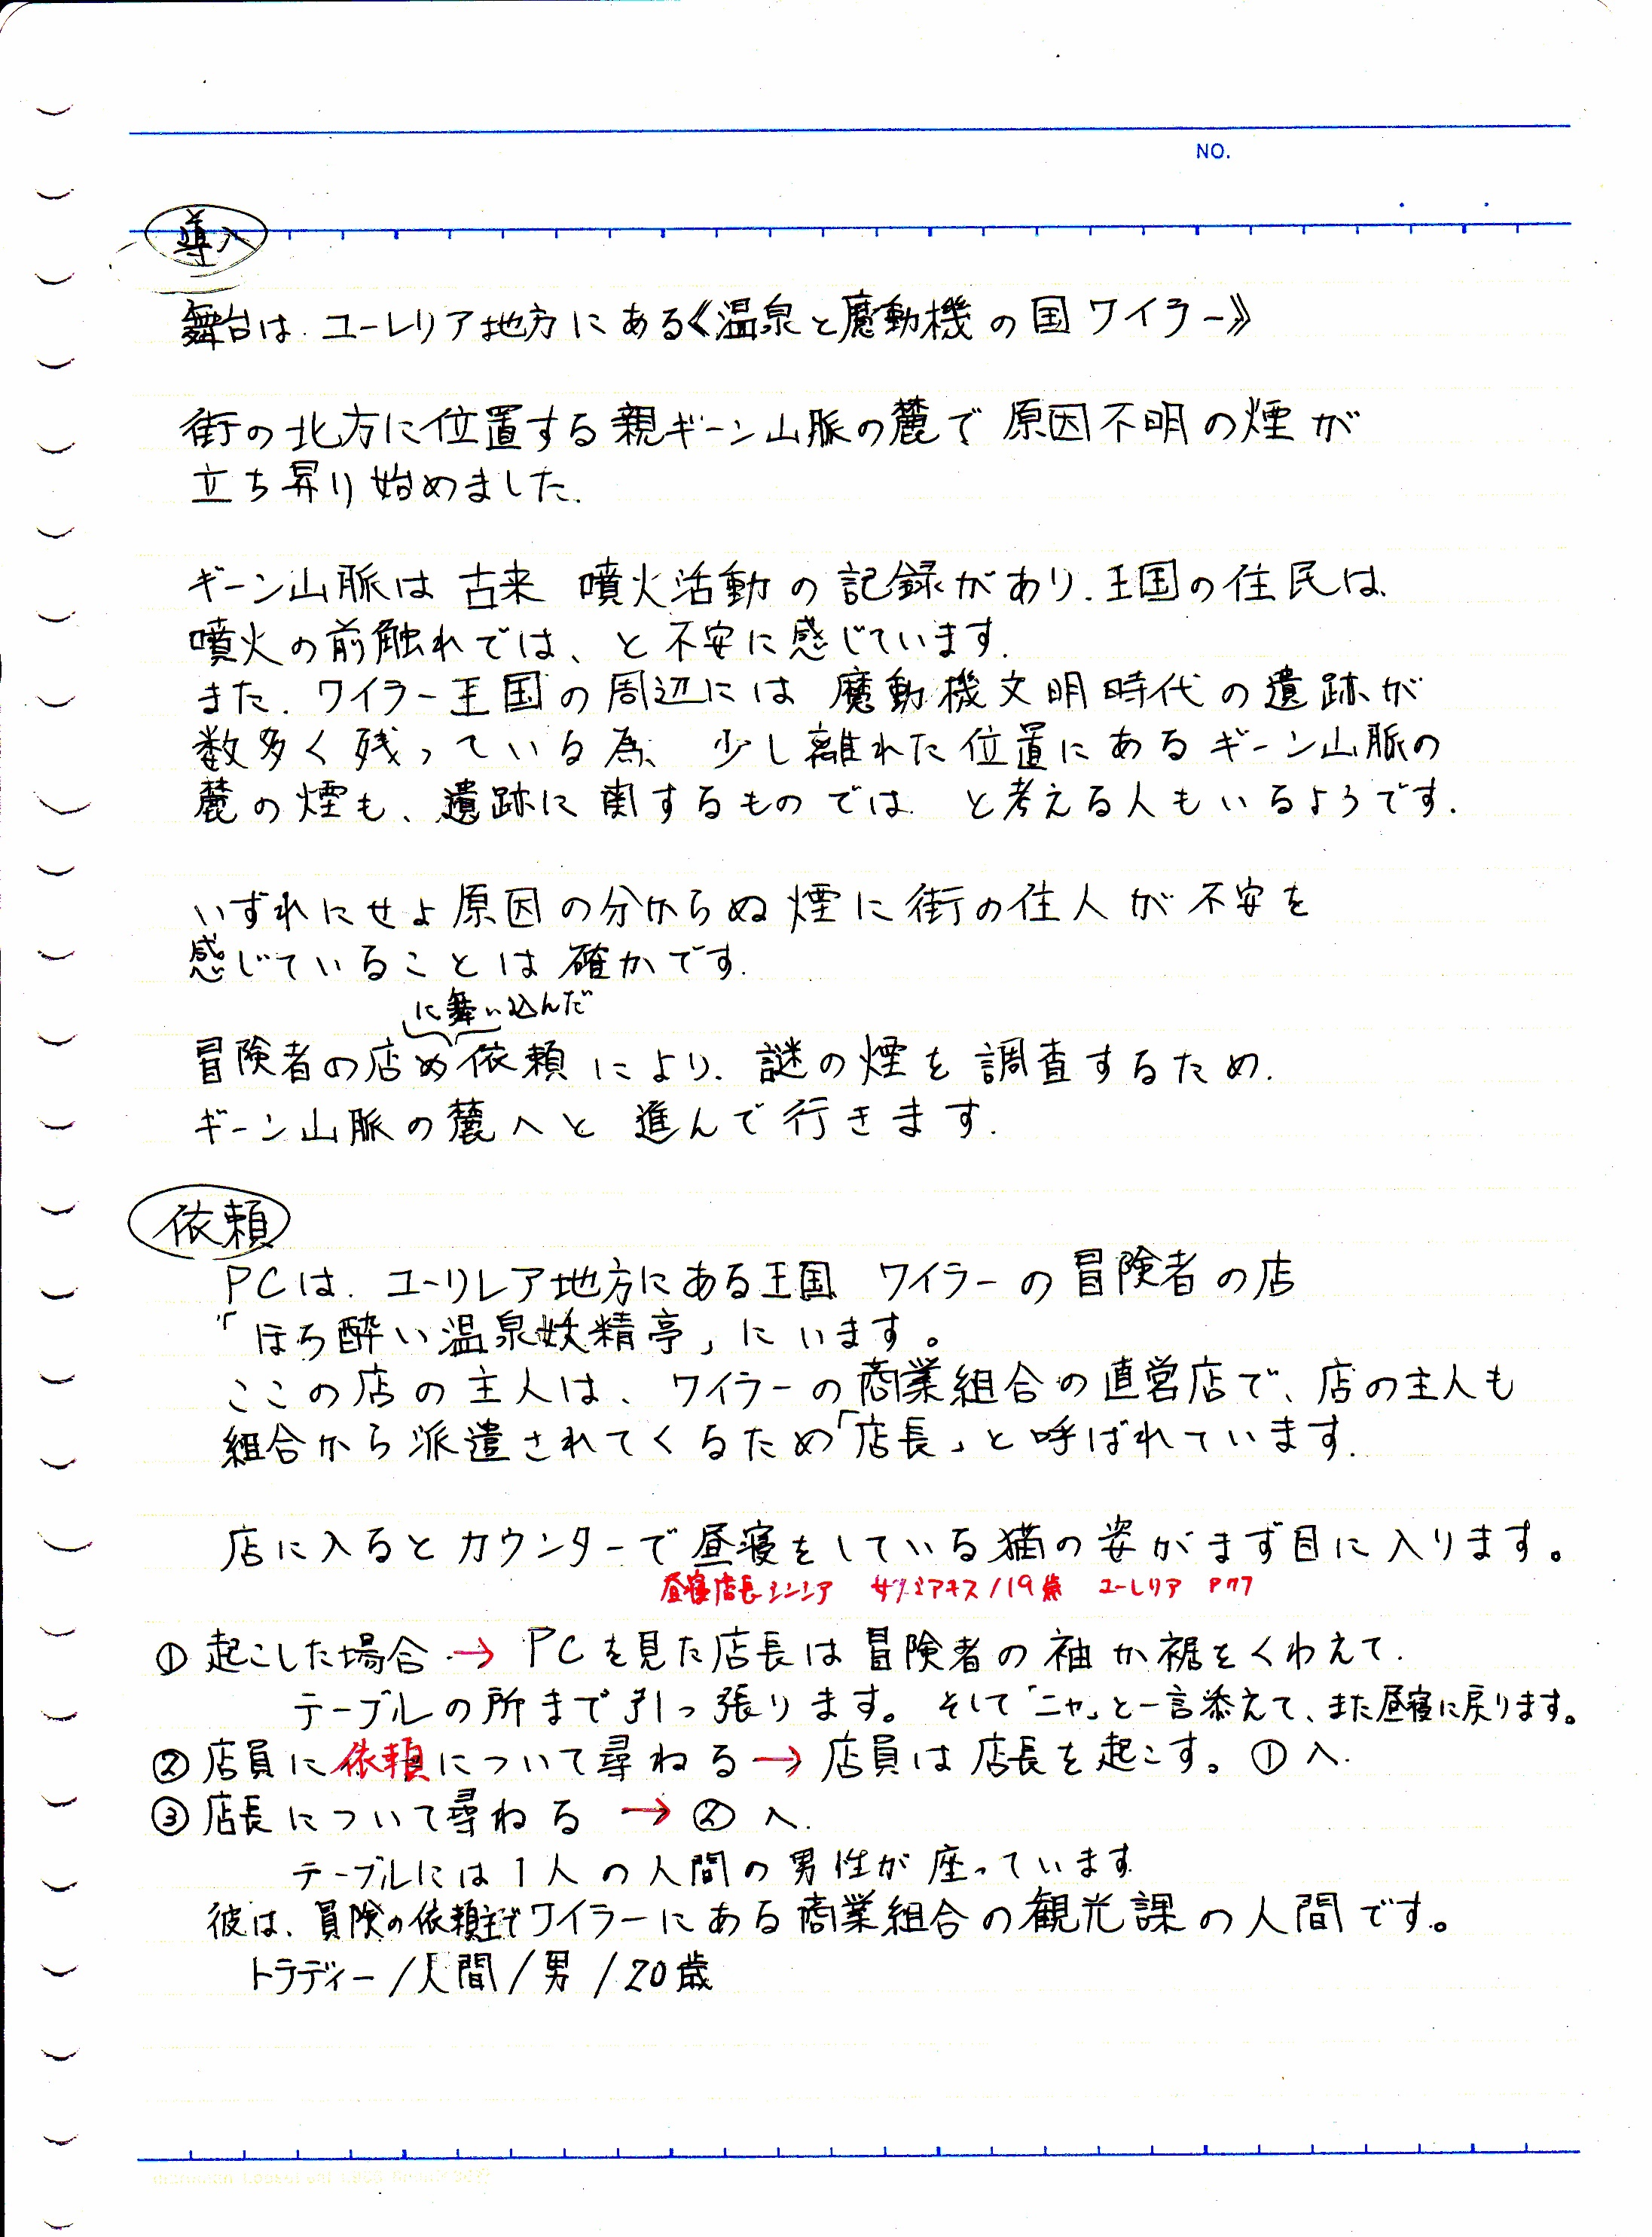 NO.
導入
舞台は、ユーレリア地方にある《温泉と魔動機の国ワイラー》
街の北方に位置する親ギーン山脈の麓で原因不明の煙が
立ち昇り始めました。
ギーン山脈は古来 噴火活動の記録があり、王国の住民は、
噴火の前触れでは、と不安に感じています。
また、ワイラー王国の周辺には魔動機文明時代の遺跡が
数多く残っている為、少し離れた位置にあるギーン山脈の
麓の煙も、遺跡に関するものでは と考える人もいるようです。
いずれにせよ原因の分からぬ煙に街の住人が不安を
感じていることは確かです。
に舞い込んだ
冒険者の店 依頼により、謎の煙を調査するため、
ギーン山脈の麓へと 進んで行きます。
依頼
PCは、ユーリレア地方にある王国 ワイラーの冒険者の店
「ほろ酔い温泉妖精亭」にいます。
ここの店の主人は、ワイラーの商業組合の直営店で、店の主人も
組合から派遣されてくるため「店長」と呼ばれています。
店に入るとカウンターで昼寝をしている猫の姿がまず目に入ります。
昼寝店長シンシア /19歳 ユーレリア P77
① 起こした場合 → PCを見た店長は冒険者の袖か裾をくわえて、
テーブルの所まで引っ張ります。そして「ニャ」と一言添えて、また昼寝に戻ります。
② 店員に依頼について尋ねる → 店員は店長を起こす。①へ。
③ 店長について尋ねる → ②へ。
テーブルには1人の人間の男性が座っています。
彼は、冒険の依頼主でワイラーにある商業組合の観光課の人間です。
トラディー/人間/男/20歳